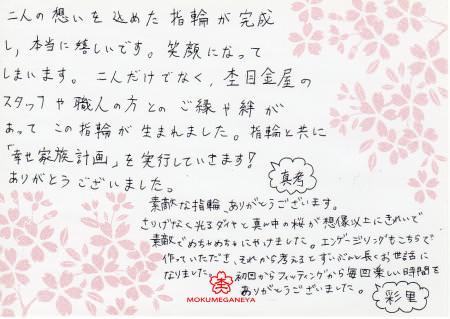 二人の想いを込めた指輪が完成
し、本当に嬉しいです。笑顔になって
しまいます。二人だけでなく、杢目金屋の
スタッフや職人の方とのご縁や絆が
あってこの指輪が生まれました。指輪と共に
「幸せ家族計画」を実行していきます!
ありがとうございました。
真考
素敵な指輪、ありがとうございます。
さりげなく光るダイヤと真ん中の桜が想像以上にきれいで
素敵でめちゃめちゃにやけました。エンゲージリングもこちらで
作っていただき、それから考えるとずいぶん長くお世話に
なりました。初回からフィッティングから毎回楽しい時間を
ありがとうございました。
彩里
杢
MOKUMEGANEYA